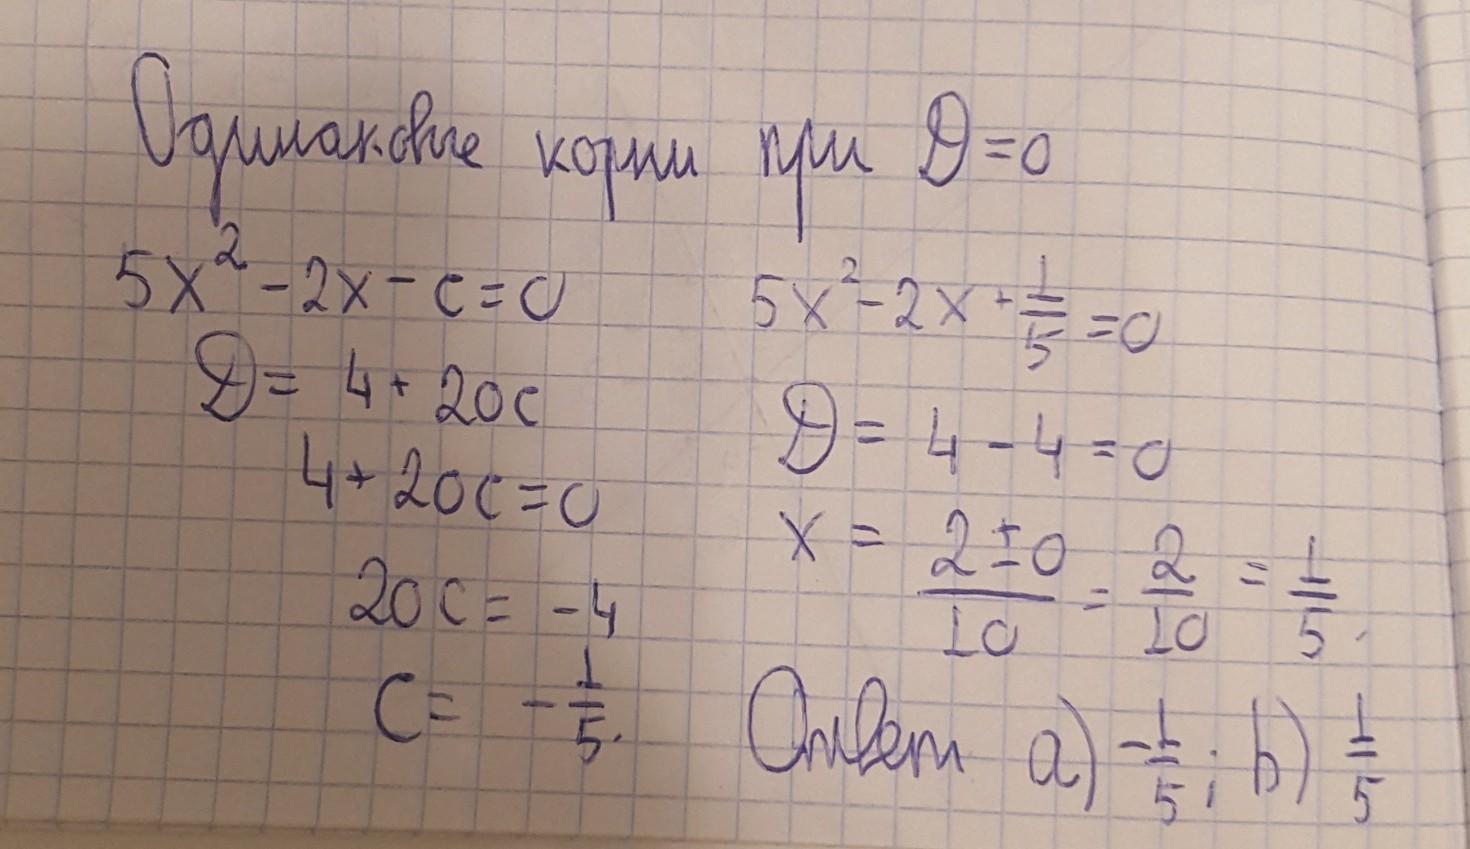 Одинаковые корни при D=0
5x² - 2x - c = 0
D = 4 + 20c
4 + 20c = 0
20c = -4
c = -1/5.
5x² - 2x + 1/5 = 0
D = 4 - 4 = 0
x = (2 ± 0)/10 = 2/10 = 1/5.
Ответ a) -1/5; b) 1/5